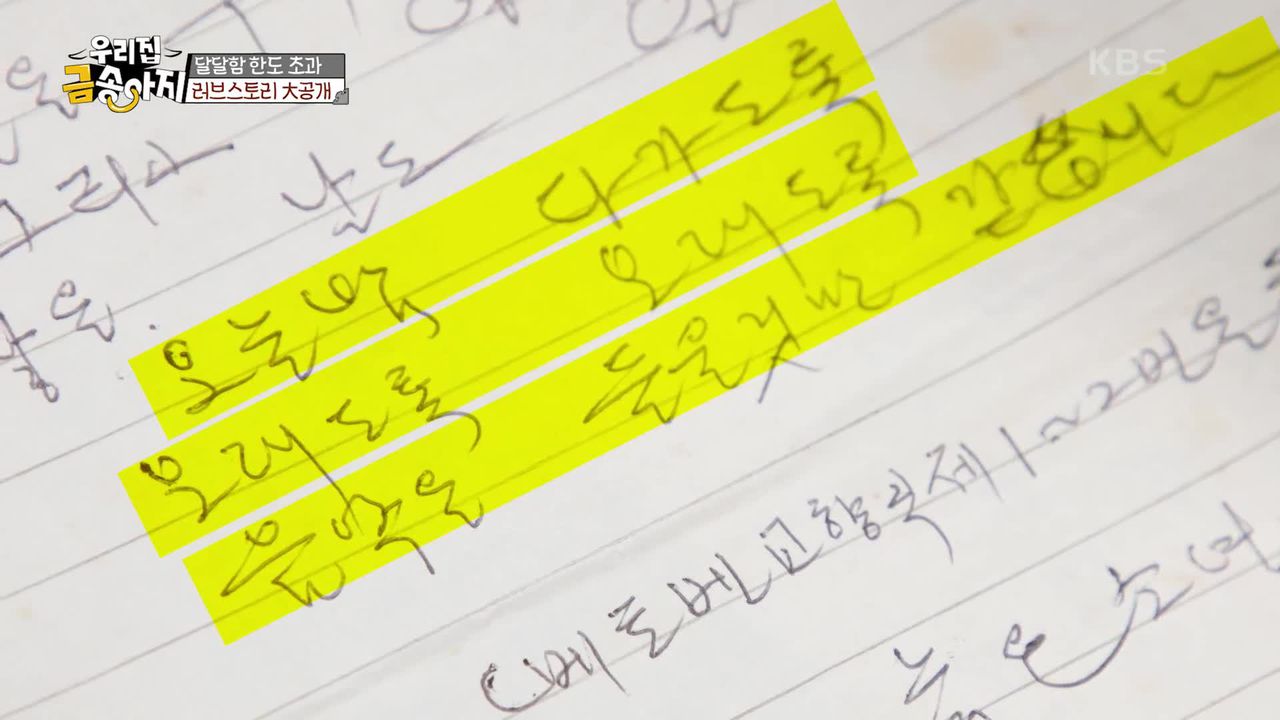 우리집
금송아지
달달함 한도 초과
러브스토리 大공개
KBS
그리다 남도
오늘밤 다가도록
오래도록 오래도록
음악은 들을것만 같습니다
(베토벤 교향곡 제 1~2번은